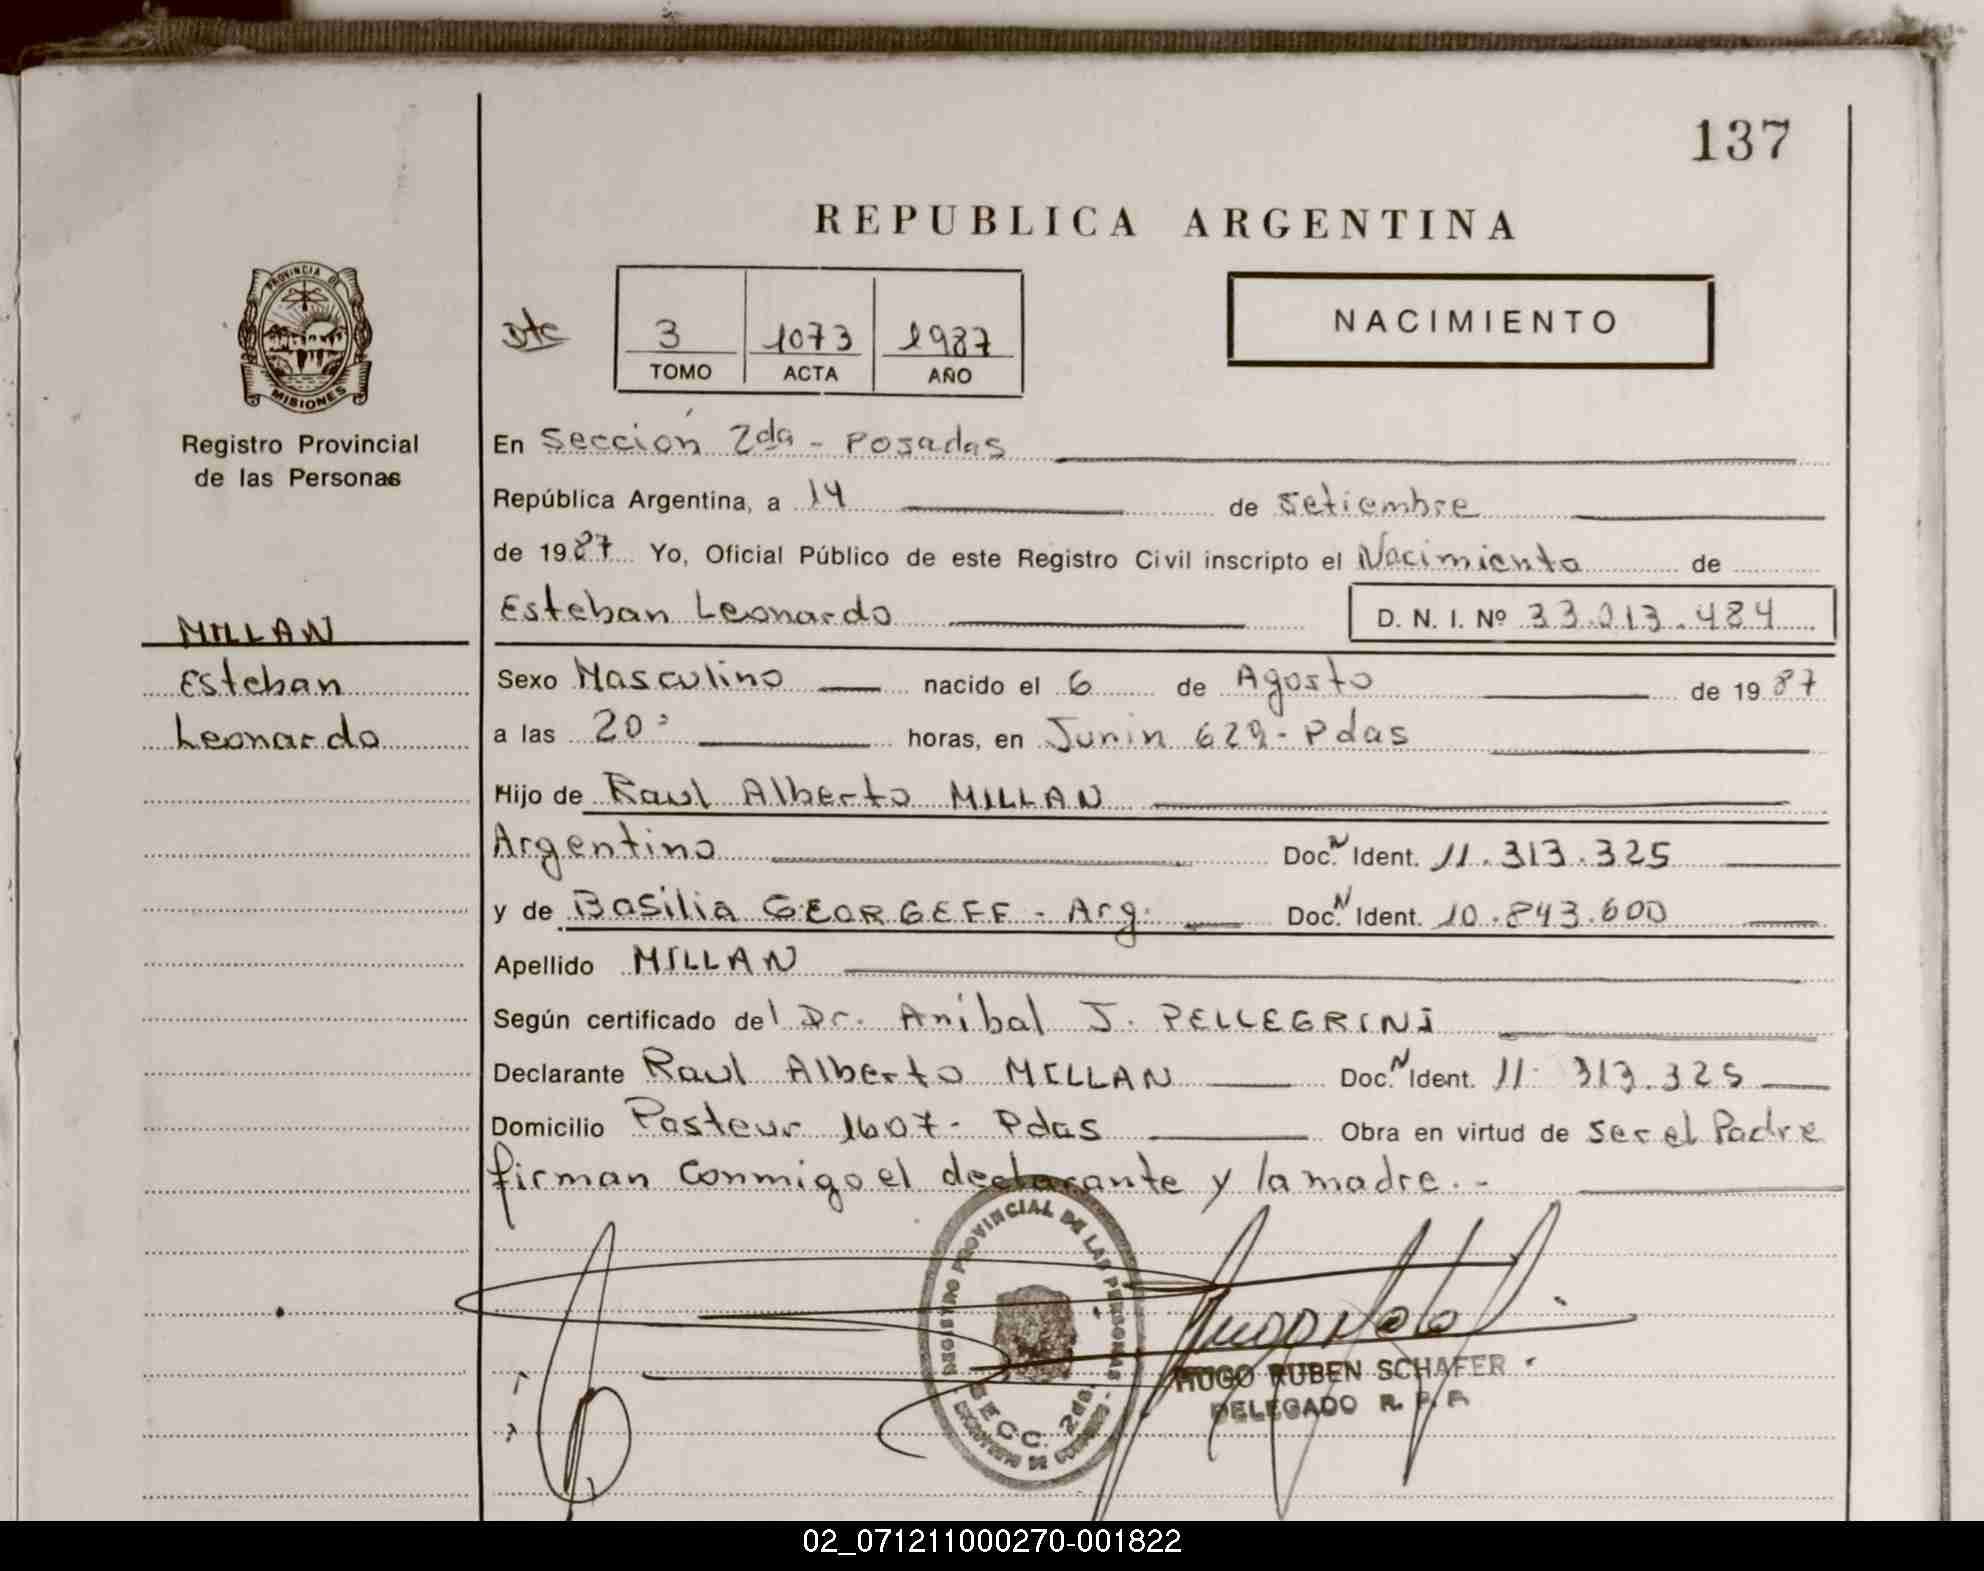 137
REPUBLICA ARGENTINA
PROVINCIA DE
MISIONES
Registro Provincial
de las Personas
3 1073 1987
TOMO ACTA AÑO
NACIMIENTO
En Sección 2da - Posadas
República Argentina, a 14 de Setiembre
de 1987 Yo, Oficial Público de este Registro Civil inscripto el Nacimiento de
Esteban Leonardo D. N. I. Nº 33.013.484
MILLAN
Esteban
Leonardo
Sexo Masculino nacido el 6 de Agosto de 1987
a las 20 horas, en Junin 629 - Pdas
Hijo de Raul Alberto MILLAN
Argentino Doc. N Ident. 11.313.325
y de Basilia GEORGEFF - Arg. Doc. N Ident. 10.843.600
Apellido MILLAN
Según certificado del Dr. Anibal J. PELLEGRINI
Declarante Raul Alberto MILLAN Doc. N Ident. 11.313.325
Domicilio Pasteur 1607 - Pdas Obra en virtud de ser el Padre
firman conmigo el declarante y la madre.-
REGISTRO PROVINCIAL DE LAS PERSONAS
SECC. 2da.
HUGO RUBEN SCHAFER
DELEGADO R. P. P.
02_071211000270-001822